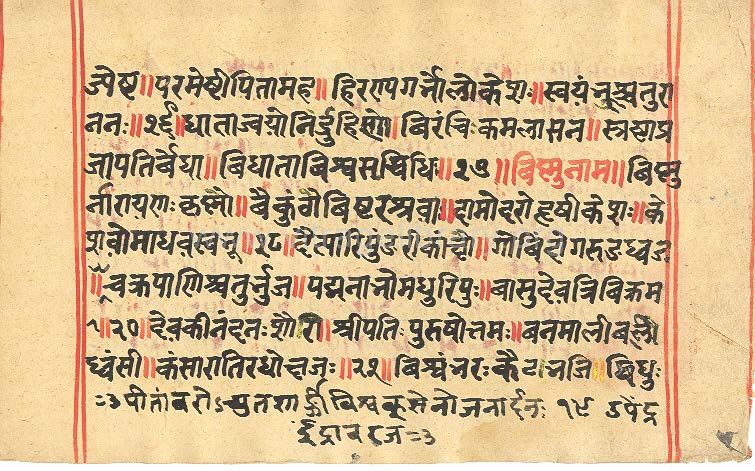 ज्येष्ठ॥परमेष्ठीपितामह॥हिरण्यगर्भोलोकेशः॥स्वयंभूश्चतुरा
ननः॥१६॥धाताब्जयोनिर्द्रुहिणो॥विरंचिःकमलासन॥स्रष्टाप्र
जापतिर्वेधा॥विधाताविश्वसृग्विधिः॥१७॥विष्णुनाम॥विष्णु
र्नारायणःकृष्णो॥वैकुंठोविष्टरश्रवा॥दामोदरोहृषीकेशः॥के
शवोमाधवःस्वभू॥१८॥दैत्यारिपुंडरीकाक्षो॥गोविंदोगरुडध्वज
॥चक्रपाणिश्चतुर्भुज॥पद्मनाभोमधुरिपुः॥वासुदेवत्रिविक्रम
॥२०॥देवकीनंदनःशौरी॥श्रीपतिःपुरुषोत्तमः॥वनमालीबली
ध्वंसी॥कंसारातिरधोक्षजः॥२१॥विश्वंभरःकैटभजि॥द्विधुः
=३पीतांबरोऽच्युतशार्ङ्गीविश्वकसेनोजनार्दनः १९ उपेंद्र
इंद्रावरज=३